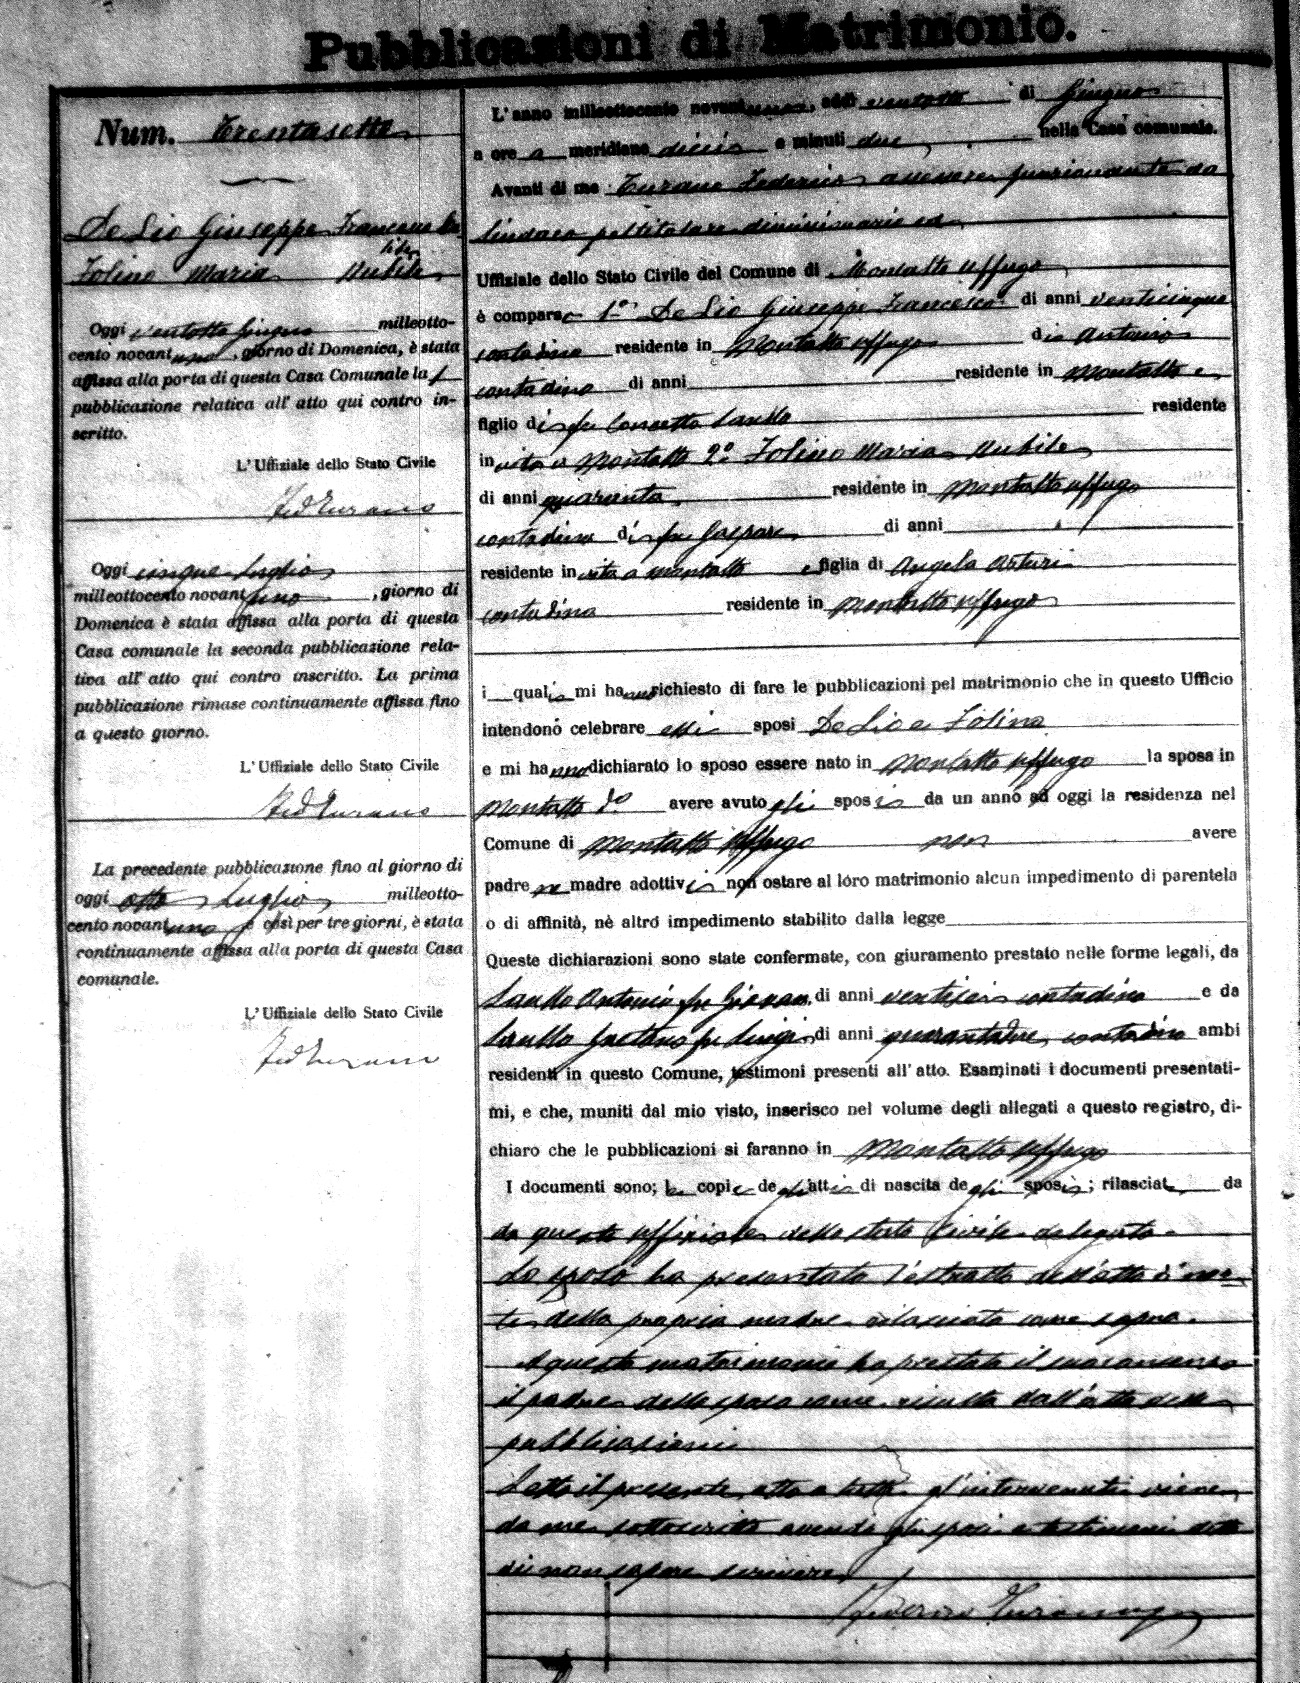 Pubblicazioni di Matrimonio.
Num. Trentasette
De Lio Giuseppe Francesco e
Folino Maria Nubile
Oggi ventotto Giugno milleotto-
cento novantuno, giorno di Domenica, è stata
affissa alla porta di questa Casa Comunale la 1
pubblicazione relativa all' atto qui contro in-
scritto.
L' Uffiziale dello Stato Civile
Fed Turano
Oggi cinque Luglio
milleottocento novantuno, giorno di
Domenica è stata affissa alla porta di questa
Casa comunale la seconda pubblicazione rela-
tiva all' atto qui contro inscritto. La prima
pubblicazione rimase continuamente affissa fino
a questo giorno.
L' Uffiziale dello Stato Civile
Fed Turano
La precedente pubblicazione fino al giorno di
oggi otto Luglio milleotto-
cento novantuno e così per tre giorni, è stata
continuamente affissa alla porta di questa Casa
comunale.
L' Uffiziale dello Stato Civile
Fed Turano
L' anno milleottocento novantuno, addì ventotto di Giugno
a ore a meridiane dieci e minuti due, nella Casa comunale.
Avanti di me Turano Federico assessore funzionante da
Sindaco pel titolare dimissionario ed
Uffiziale dello Stato Civile del Comune di Montalto Uffugo
è comparso 1º De Lio Giuseppe Francesco di anni venticinque
contadino residente in Montalto Uffugo di Antonio
contadino di anni residente in Montalto e
figlio di fu Concetta Saullo residente
in vita a Montalto 2º Folino Maria Nubile
di anni quaranta residente in Montalto Uffugo
contadina di fu Gaspare di anni
residente in vita a Montalto e figlia di Angela Arturi
contadina residente in Montalto Uffugo
i quali mi hanno richiesto di fare le pubblicazioni pel matrimonio che in questo Ufficio
intendono celebrare essi sposi De Lio e Folino
e mi hanno dichiarato lo sposo essere nato in Montalto Uffugo la sposa in
Montalto do avere avuto gli sposi da un anno ad oggi la residenza nel
Comune di Montalto Uffugo non avere
padre ne madre adottivi non ostare al loro matrimonio alcun impedimento di parentela
o di affinità, nè altro impedimento stabilito dalla legge
Queste dichiarazioni sono state confermate, con giuramento prestato nelle forme legali, da
Saullo Antonio fu Giovan. di anni ventisei contadino e da
Saullo Gaetano fu Luigi di anni quarantadue, contadino ambi
residenti in questo Comune, testimoni presenti all' atto. Esaminati i documenti presentati-
mi, e che, muniti dal mio visto, inserisco nel volume degli allegati a questo registro, di-
chiaro che le pubblicazioni si faranno in Montalto Uffugo
I documenti sono; le copie degli atti di nascita degli sposi; rilasciate da
da questo uffiziale dello stato Civile delegato.
Lo sposo ha presentato l'estratto dell'atto di mor-
te della propria madre rilasciato come sopra.
A questo matrimonio ha prestato il suo consenso
il padre dello sposo come risulta dall'atto delle
pubblicazioni
Letto il presente atto a tutti gl'intervenuti viene
da me sottoscritto avendo gli sposi e testimoni detto
di non sapere scrivere
Federico Turano